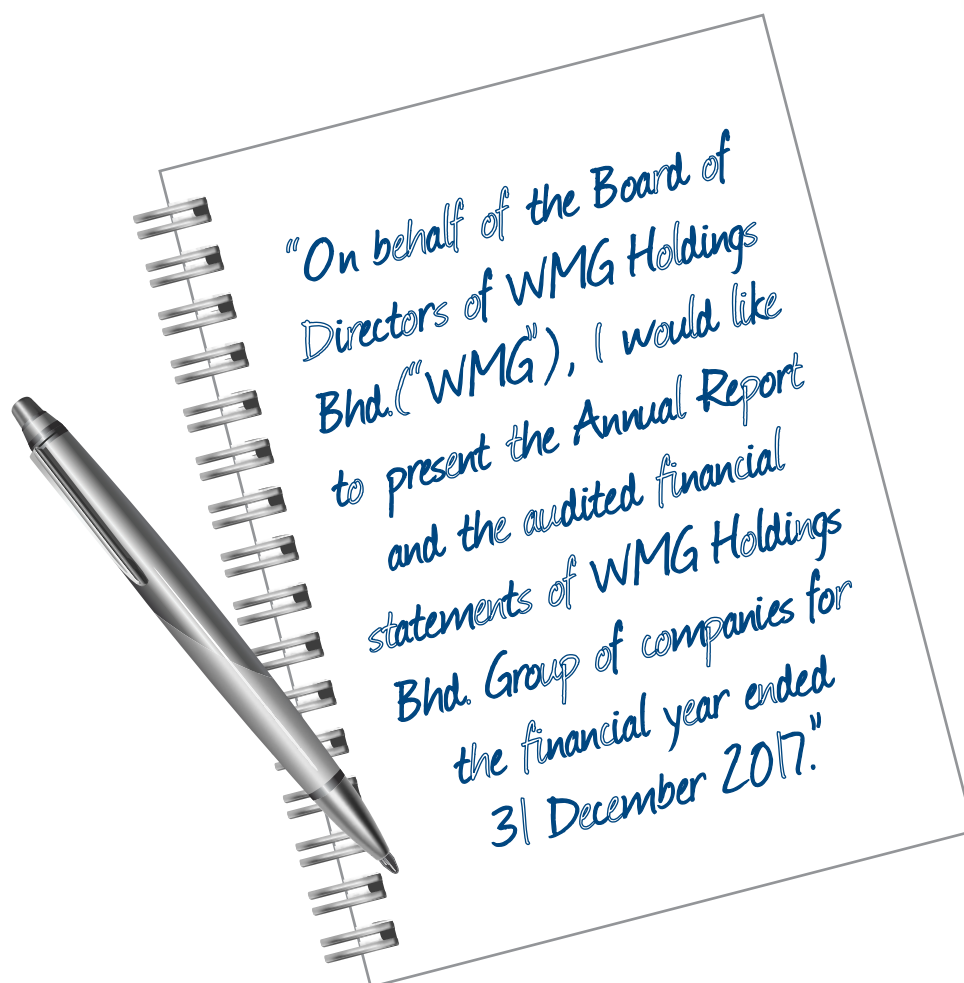 “On behalf of the Board of
Directors of WMG Holdings
Bhd.(“WMG”), I would like
to present the Annual Report
and the audited financial
statements of WMG Holdings
Bhd. Group of companies for
the financial year ended
31 December 2017.”